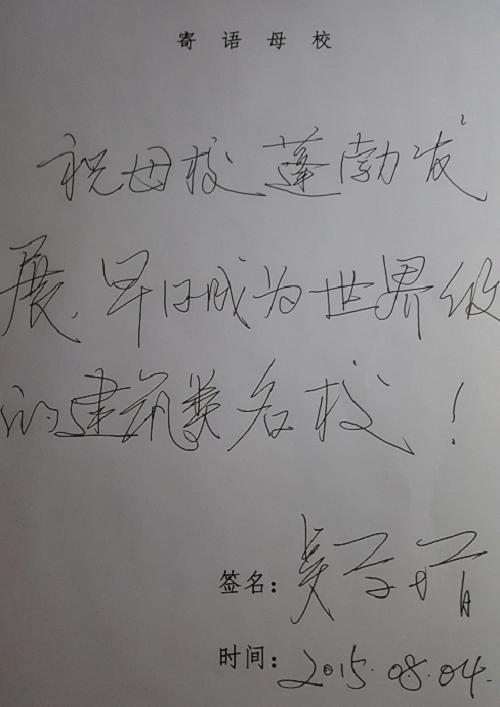 寄语母校
祝母校蓬勃发
展,早日成为世界级
的建筑类名校!
签名:吴
时间:2015.08.04.